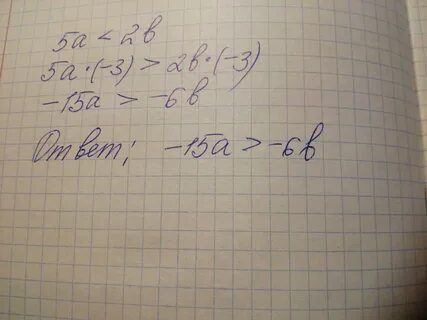 5a < 2в
5a·(-3) > 2в·(-3)
-15a > -6в
Ответ; -15a > -6в